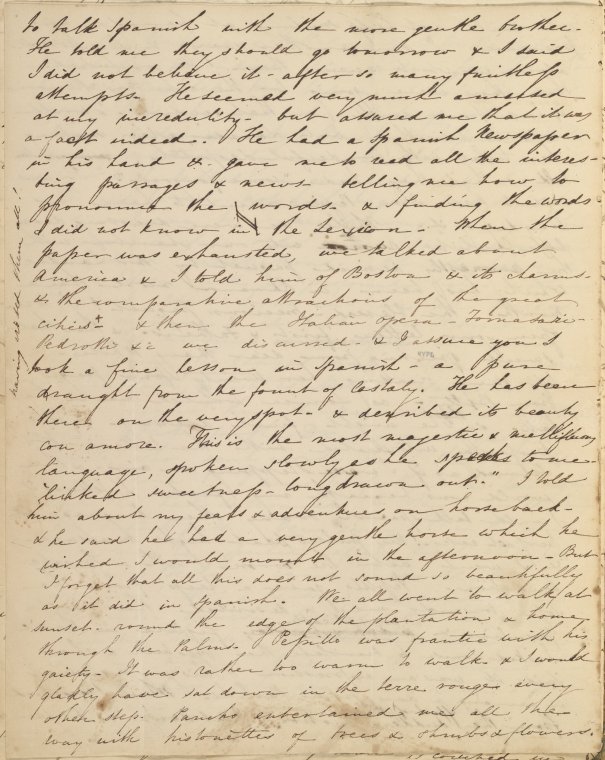 to talk Spanish with the more gentle brother.
He told me they should go tomorrow & I said
I did not believe it - after so many fruitless
attempts. He seemed very much amused
at my incredulity - but assured me that it was
a fact indeed. He had a Spanish Newspaper
in his hand & gave me to read all the interes-
ting passages & news telling me how to
pronounce the words & I finding the words
I did not know in the Lexicon - When the
paper was exhausted, we talked about
America & I told him of Boston & its charms -
& the comparative attractions of the great
cities + & then the Italian opera -
Pedrotti &c we discussed - & I assure you I
took a fine lesson in Spanish - a pure
draught from the fount of Castaly. He has been
there on the very spot - & described its beauty
con amore. This is the most majestic & mellifluous
language, spoken slowly as he speaks to me -
"linked sweetness - long drawn out." I told
him about my feats & adventures on horseback -
& he said he had a very gentle horse which he
wished I would mount in the afternoon - But
I forget that all this does not sound so beautifully
as it did in Spanish. We all went to walk at
sunset round the edge of the plantation & home
through the Palms. Pepillo was frantic with his
gaiety - It was rather too warm to walk & I would
gladly have sat down in the terre rouge every
other step. Pancho entertained me all the
way with historiettes of trees & shrubs & flowers.
+ having visited them all!
NYPL